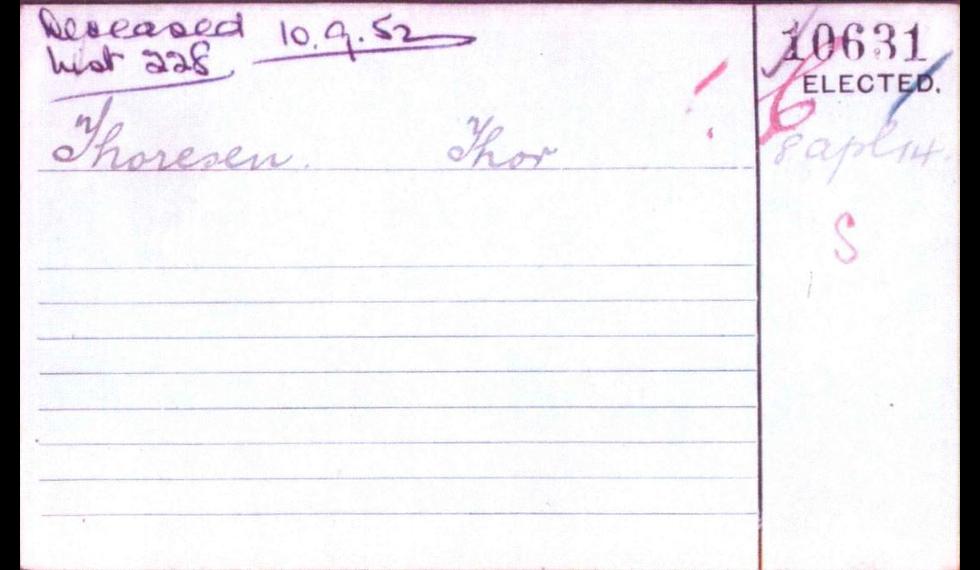 Deceased 10.9.52
List 228
10631
ELECTED.
Thoresen. Thor
8 apl 14.
S